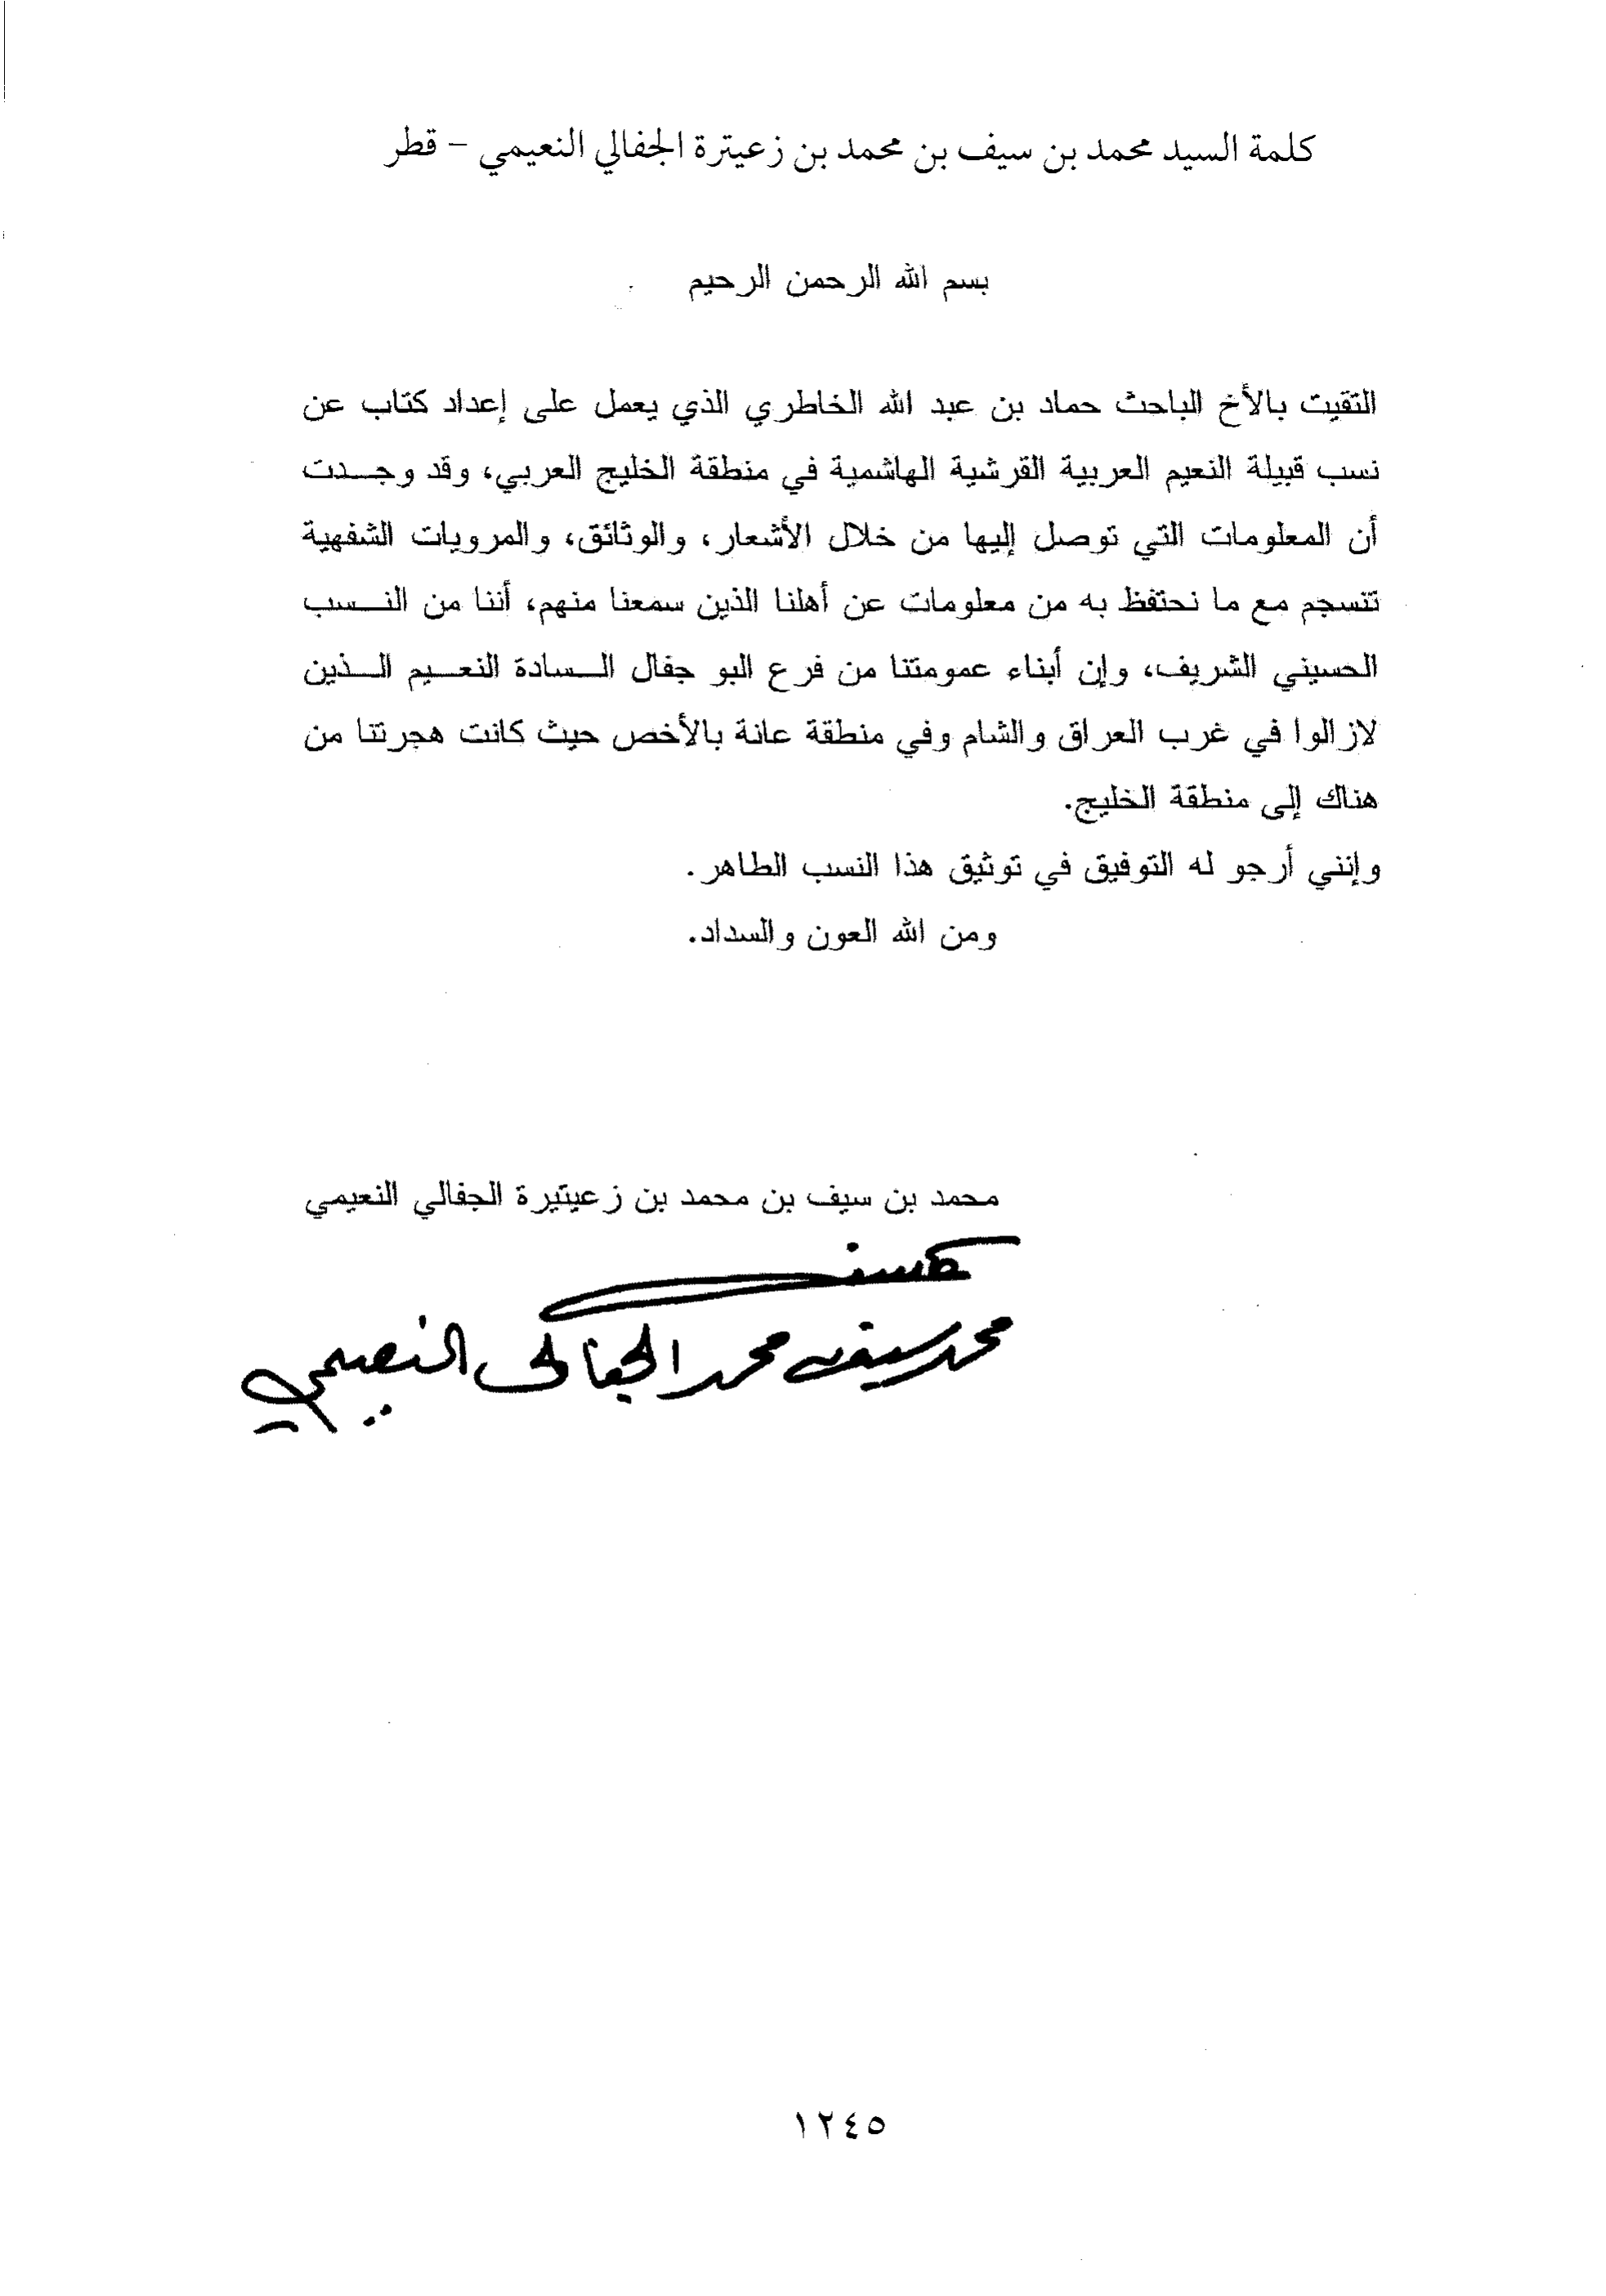 كلمة السيد محمد بن سيف بن محمد بن زعيترة الجفالي النعيمي – قطر
بسم الله الرحمن الرحيم
التقيت بالأخ الباحث حماد بن عبد الله الخاطري الذي يعمل على إعداد كتاب عن
نسب قبيلة النعيم العربية القرشية الهاشمية في منطقة الخليج العربي، وقد وجدت
أن المعلومات التي توصل إليها من خلال الأشعار، والوثائق، والمرويات الشفهية
تنسجم مع ما نحتفظ به من معلومات عن أهلنا الذين سمعنا منهم، أننا من النسب
الحسيني الشريف، وإن أبناء عمومتنا من فرع البو جفال السادة النعيم الذين
لازالوا في غرب العراق والشام وفي منطقة عانة بالأخص حيث كانت هجرتنا من
هناك إلى منطقة الخليج.
وإنني أرجو له التوفيق في توثيق هذا النسب الطاهر.
ومن الله العون والسداد.
محمد بن سيف بن محمد بن زعيتيرة الجفالي النعيمي
محمد سيف محمد الجفالي النعيمي
١٢٤٥